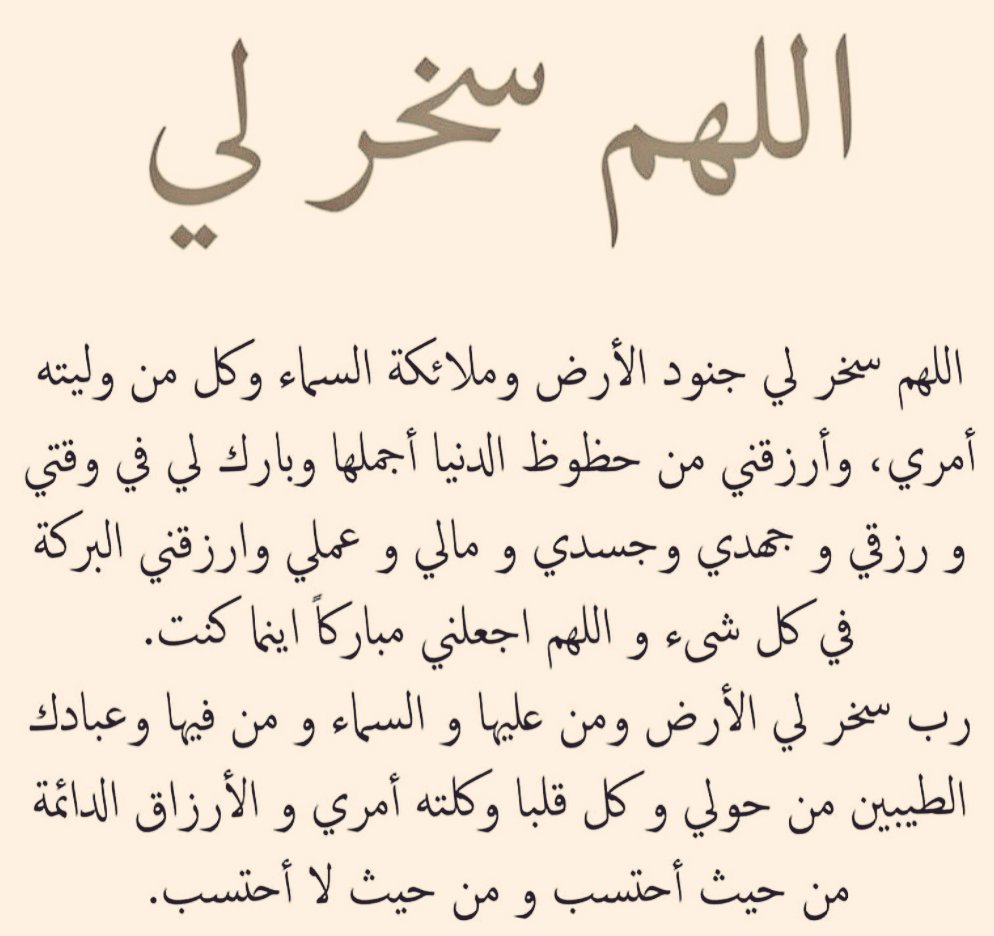 اللهم سخر لي
اللهم سخر لي جنود الأرض وملائكة السماء وكل من وليته
أمري، وأرزقني من حظوظ الدنيا أجملها وبارك لي في وقتي
و رزقي و جهدي وجسدي و مالي و عملي وارزقني البركة
في كل شىء و اللهم اجعلني مباركاً اينما كنت.
رب سخر لي الأرض ومن عليها و السماء و من فيها وعبادك
الطيبين من حولي و كل قلبا وكلته أمري و الأرزاق الدائمة
من حيث أحتسب و من حيث لا أحتسب.